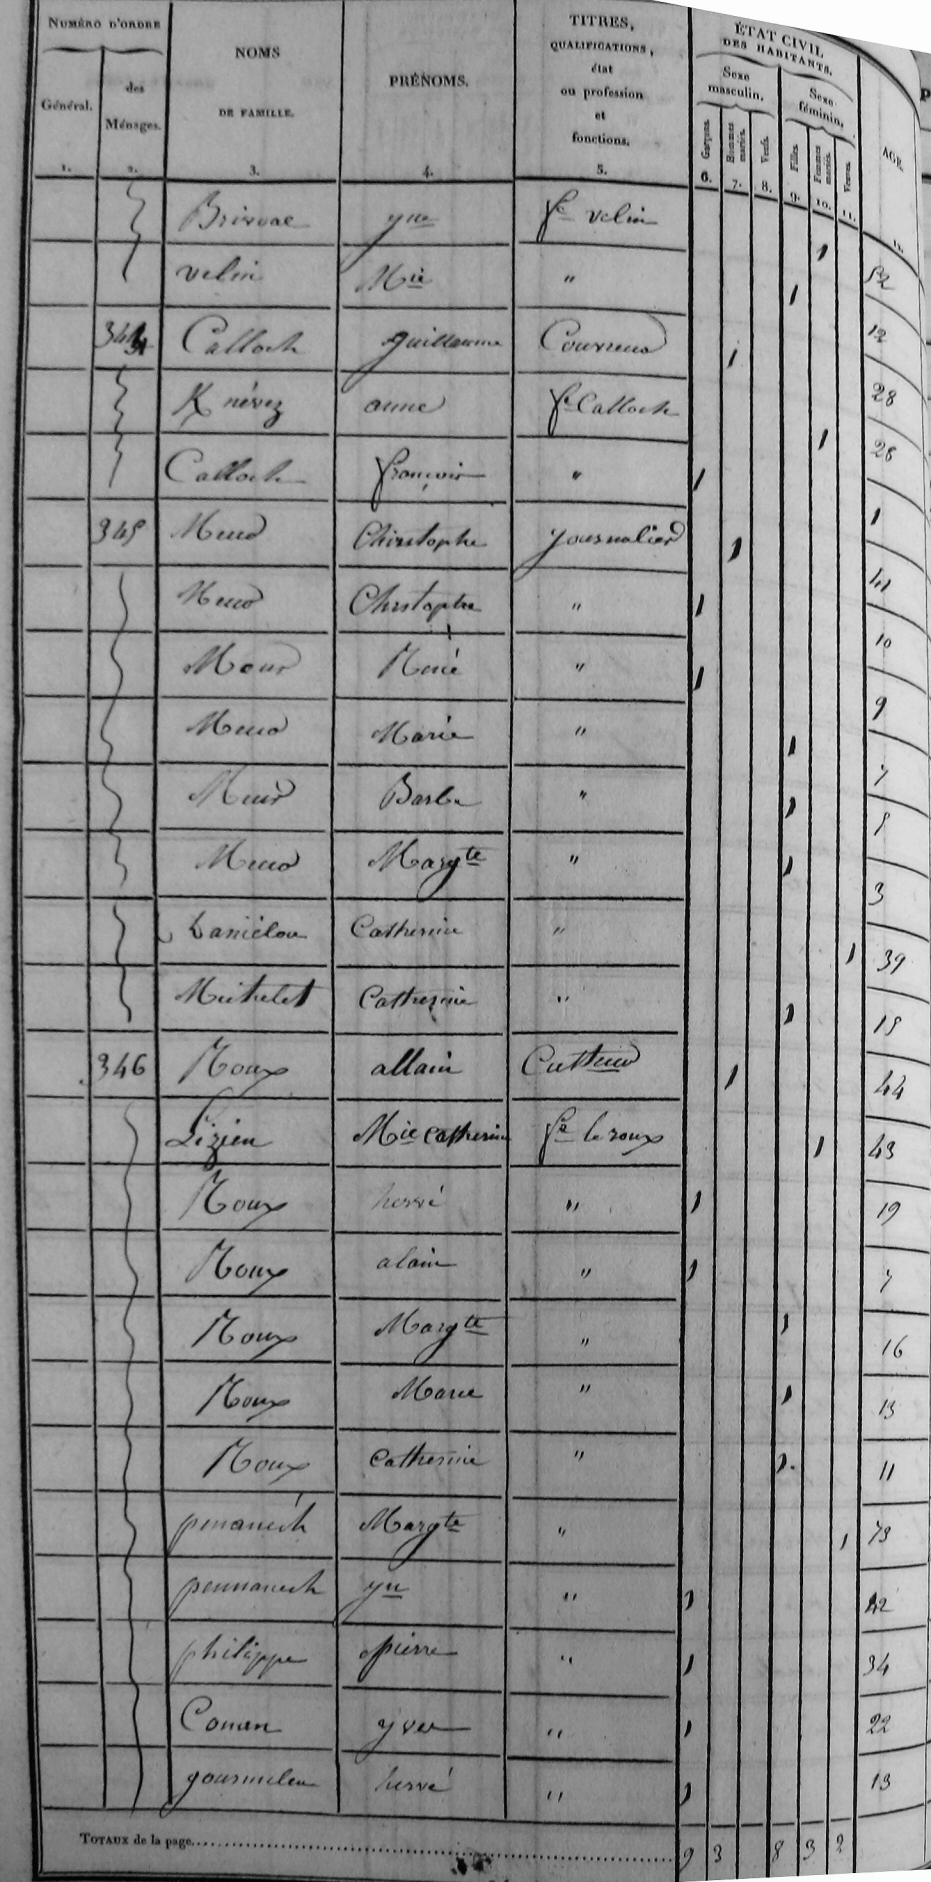 NUMÉRO D'ORDRE
Général.
des Ménages.
NOMS DE FAMILLE.
PRÉNOMS.
TITRES, QUALIFICATIONS, état ou profession et fonctions.
ÉTAT CIVIL DES HABITANTS.
Sexe masculin.
Sexe féminin.
Garçons.
Hommes mariés.
Veufs.
Filles.
Femmes mariés.
Veuves.
AGE.
1. 2. 3. 4. 5. 6. 7. 8. 9. 10. 11. 12.
yne fe velin 1 52
velin Mie " 1 12
344 Calloch guillaume Couvreur 1 28
K névez anne fe Calloch 1 28
Calloch françois " 1 1
345 Meur Christophe journalier 1 41
Meur Christophe " 1 10
Meur René " 1 9
Meur Marie " 1 7
Meur Barbe " 1
Meur Margte " 1 3
Daniélou Catherine " 1 39
Michelet Catherine " 1
346 Roux allain Cultteur 1 44
Lizien Mie Catherine fe le roux 1 43
Roux hervé " 1 19
Roux alain " 1 7
Roux Margte " 1 16
Roux Marie " 1 13
Roux Catherine " 1 11
penanech Margte " 1 73
pennanech yn " 1 42
philippe pierre " 1 34
Conan yves " 1 22
gourmelen hervé " 1 13
TOTAUX de la page 9 3 8 3 2